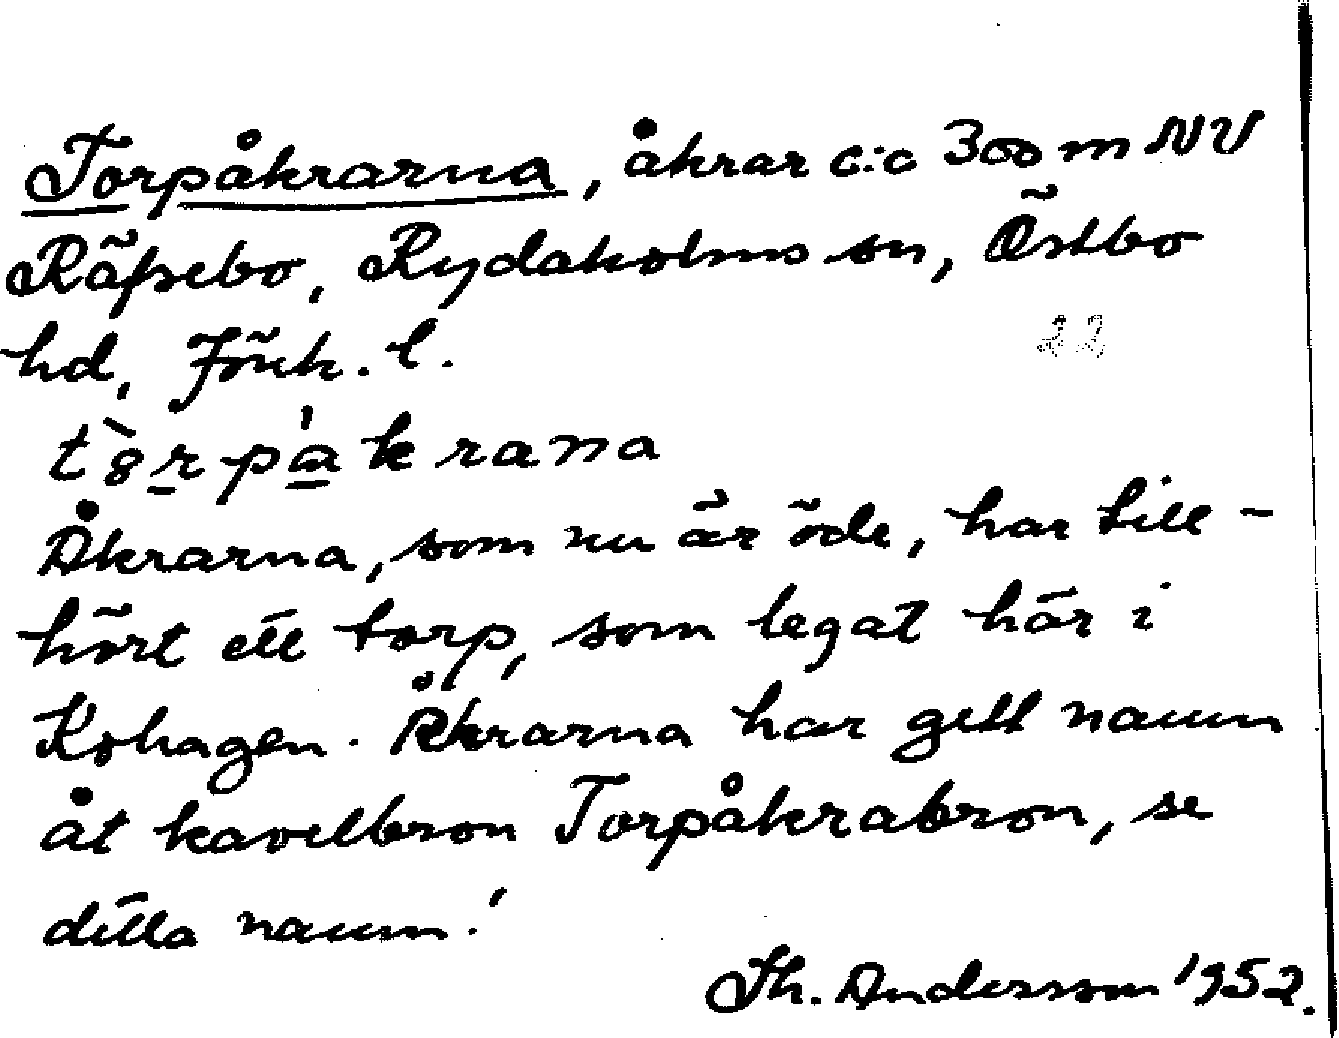 Torpåkrarna, åkrar c:a 300 m NV
Räfsebo, Rydaholms sn, Östbo
hd, Jönk. l.
22
tòrpåkrana
Åkrarna, som nu är öde, har till-
hört ett torp, som legat här i
Kohagen. Åkrarna har gett namn
åt kavelbron Torpåkrabron, se
detta namn!
Th. Andersson 1952.